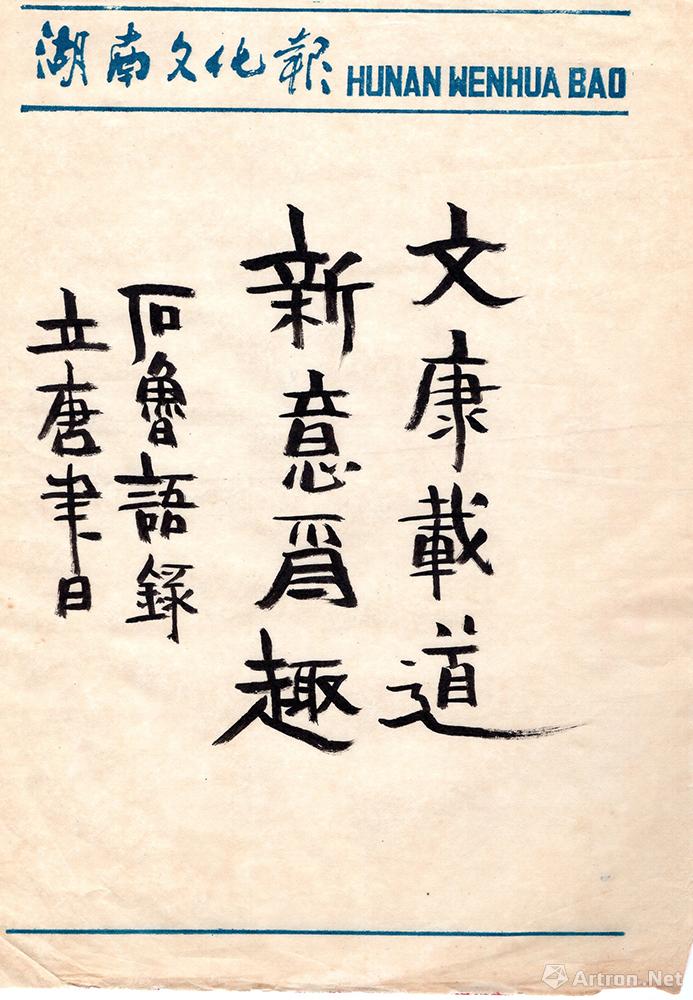 湖南文化報 HUNAN WENHUA BAO
文康載道
新意爲趣
石魯語錄
立唐聿日
Artron.Net